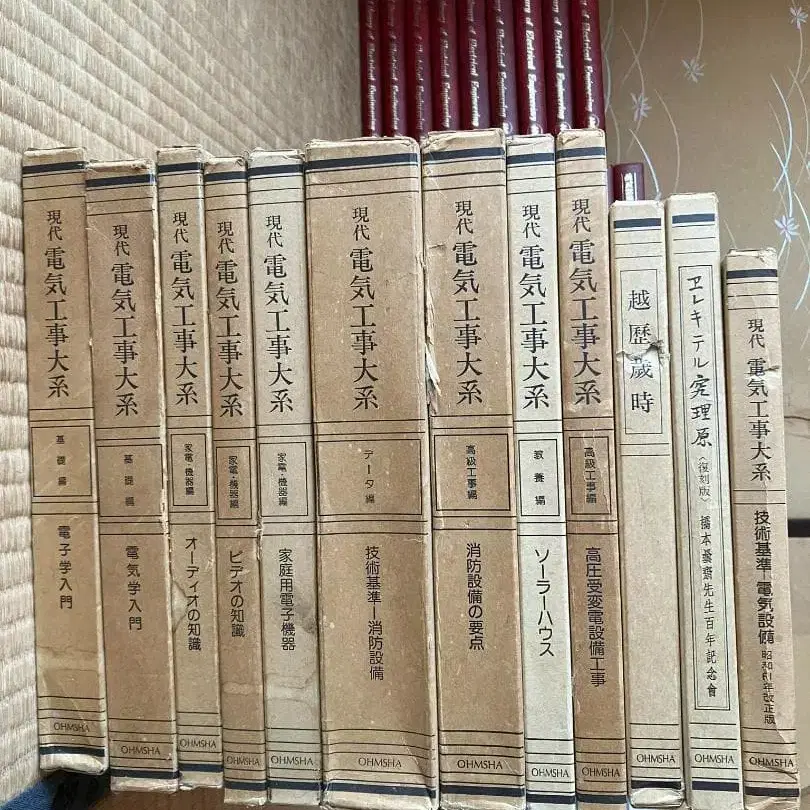 Library of Electrical Engineering
Library of Electrical Engineering
Library of Electrical Engineering
Library of Electrical Engineering
Library of Electrical Engineering
Library of Electrical Engineering
Library of Electrical Engineering
Library of Electrical Engineering
Library of Electrical Engineering
現代 電気工事大系
基礎編
電子学入門
OHMSHA
現代 電気工事大系
基礎編
電気学入門
OHMSHA
現代 電気工事大系
家電・機器編
オーディオの知識
OHMSHA
現代 電気工事大系
家電・機器編
ビデオの知識
OHMSHA
現代 電気工事大系
家電・機器編
家庭用電子機器
OHMSHA
現代 電気工事大系
データ編
技術基準―消防設備
OHMSHA
現代 電気工事大系
高級工事編
消防設備の要点
OHMSHA
現代 電気工事大系
教養編
ソーラーハウス
OHMSHA
現代 電気工事大系
高級工事編
高圧受変電設備工事
OHMSHA
越歴歳時
OHMSHA
ヱレキテル究理原
〈復刻版〉
橋本曇齋先生百年記念會
OHMSHA
現代 電気工事大系
技術基準―電気設備
昭和61年改正版
OHMSHA